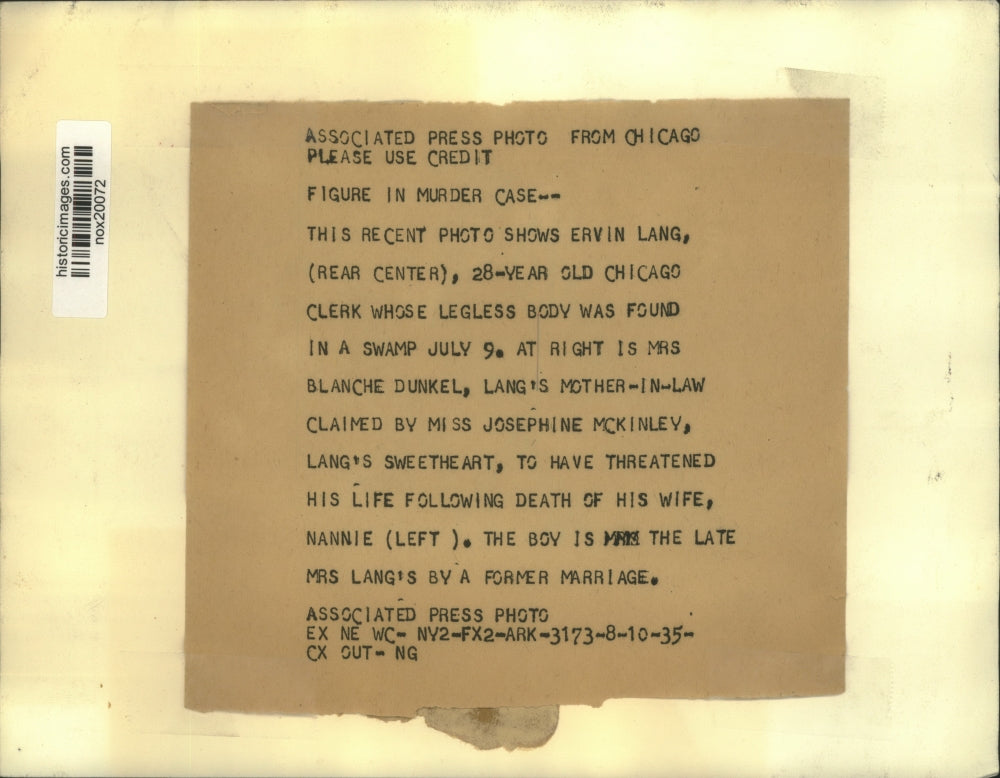 historicimages.com
nox20072
ASSOCIATED PRESS PHOTO FROM CHICAGO
PLEASE USE CREDIT
FIGURE IN MURDER CASE--
THIS RECENT PHOTO SHOWS ERVIN LANG,
(REAR CENTER), 28-YEAR OLD CHICAGO
CLERK WHOSE LEGLESS BODY WAS FOUND
IN A SWAMP JULY 9. AT RIGHT IS MRS
BLANCHE DUNKEL, LANG'S MOTHER-IN-LAW
CLAIMED BY MISS JOSEPHINE MCKINLEY,
LANG'S SWEETHEART, TO HAVE THREATENED
HIS LIFE FOLLOWING DEATH OF HIS WIFE,
NANNIE (LEFT ). THE BOY IS THE LATE
MRS LANG'S BY A FORMER MARRIAGE.
ASSOCIATED PRESS PHOTO
EX NE WC- NY2-FX2-ARK-3173-8-10-35-
CX OUT- NG